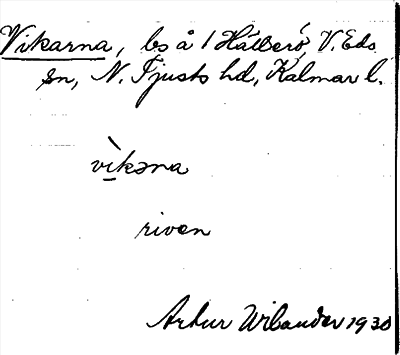 Vikarna, bs å / Hålberö, V. Eds
sn, N. Tjusts hd, Kalmar l.
vìkəna
riven
Artur Wilander 1930